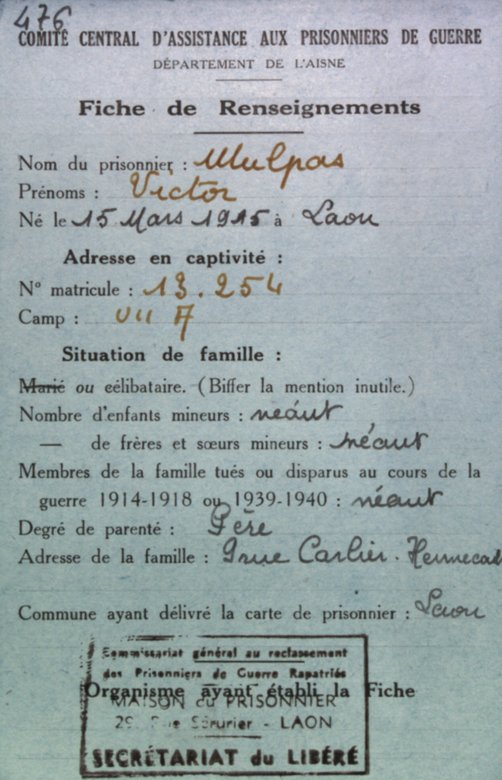 476
COMITÉ CENTRAL D'ASSISTANCE AUX PRISONNIERS DE GUERRE
DÉPARTEMENT DE L'AISNE
Fiche de Renseignements
Nom du prisonnier : Mulpas
Prénoms : Victor
Né le 15 Mars 1915 à Laon
Adresse en captivité :
N° matricule : 13.254
Camp : VII A
Situation de famille :
Marié ou célibataire. (Biffer la mention inutile.)
Nombre d'enfants mineurs : néant
— de frères et sœurs mineurs : néant
Membres de la famille tués ou disparus au cours de la
guerre 1914-1918 ou 1939-1940 : néant
Degré de parenté : Père
Adresse de la famille : 9 rue Carlier.
Commune ayant délivré la carte de prisonnier : Laon
Commissariat général au reclassement
des Prisonniers de Guerre Rapatriés
Organisme ayant établi la Fiche
MAISON du PRISONNIER
29 Rue Sérurier - LAON
SECRÉTARIAT du LIBÉRÉ